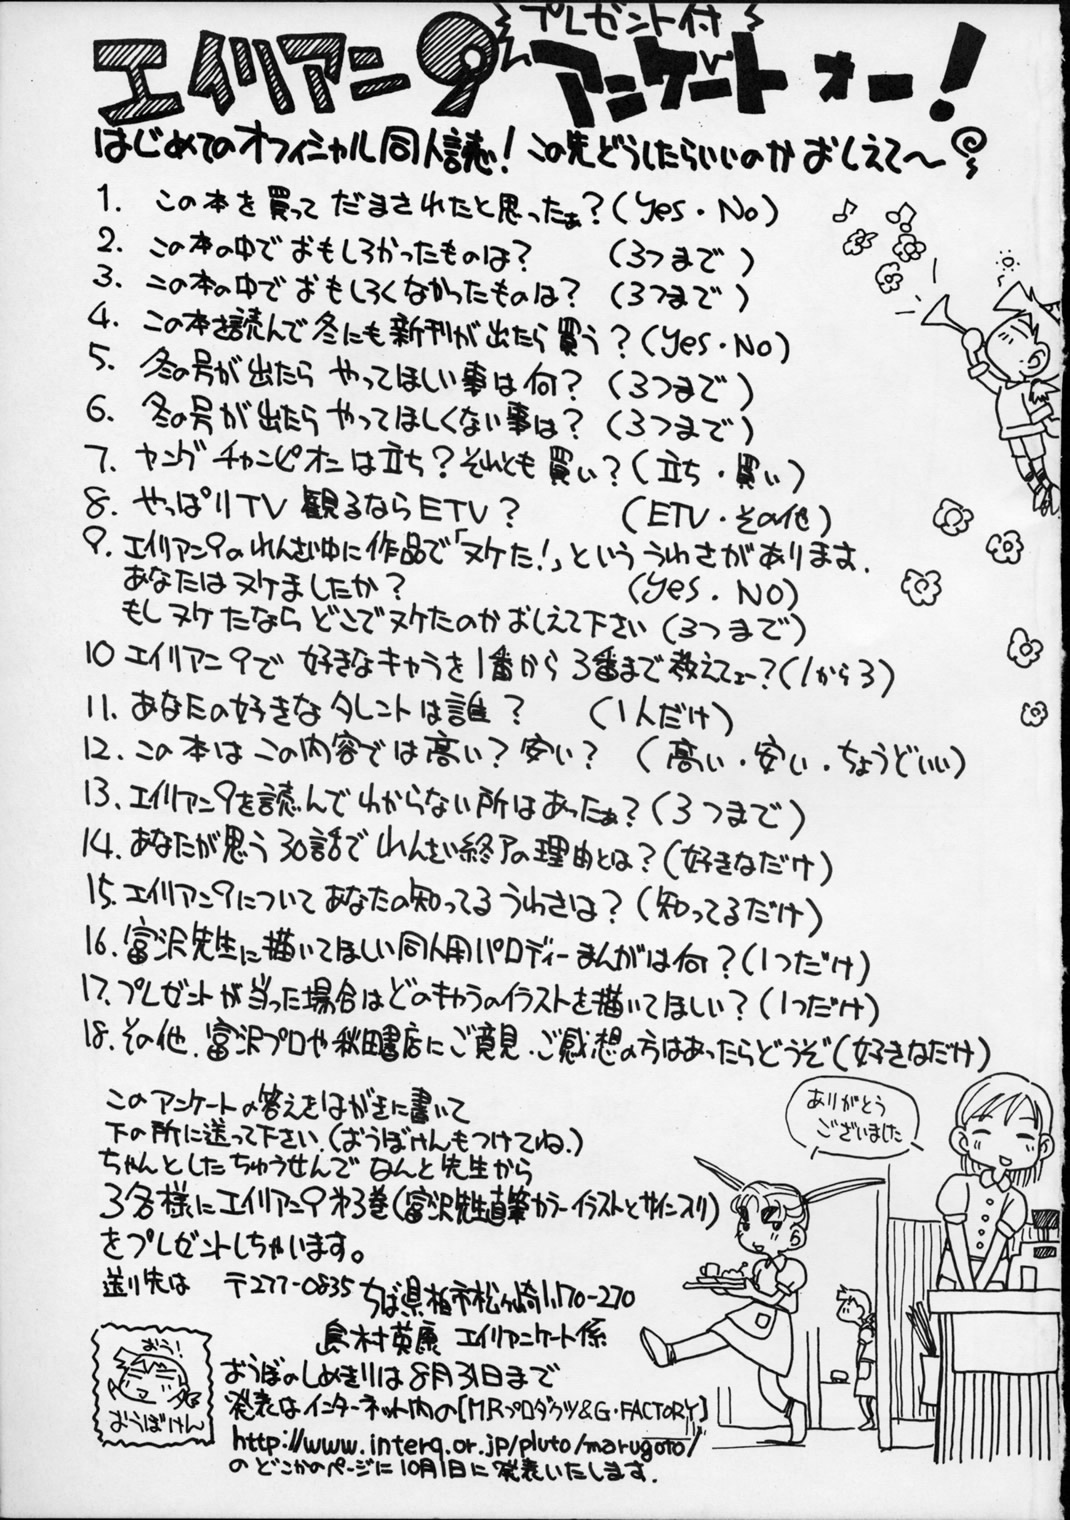 プレゼント付
エイリアン9 アンケートォー!
はじめてのオフィシャル同人誌! この先どうしたらいいのか おしえて〜
1. この本を買って だまされたと思ったぁ?(Yes・No)
2. この本の中で おもしろかったものは? (3つまで)
3. この本の中で おもしろくなかったものは? (3つまで)
4. この本を読んで冬にも新刊が出たら買う?(Yes・No)
5. 冬の号が出たら やってほしい事は何? (3つまで)
6. 冬の号が出たら やってほしくない事は? (3つまで)
7. ヤングチャンピオンは立ち?それとも買い?(立ち・買い)
8. やっぱりTV観るならETV? (ETV・その他)
9. エイリアン9のれんさい中に作品で「ヌケた!」といううわさがあります.
あなたはヌケましたか? (Yes・NO)
もしヌケたなら どこでヌケたのか おしえて下さい(3つまで)
10 エイリアン9で 好きなキャラを1番から3番まで教えてェー?(1から3)
11. あなたの好きなタレントは誰? (1人だけ)
12. この本はこの内容では高い?安い? (高い・安い・ちょうどいい)
13. エイリアン9を読んでわからない所はあったぁ?(3つまで)
14. あなたが思う30話でれんさい終了の理由とは?(好きなだけ)
15. エイリアン9についてあなたの知ってるうわさは?(知ってるだけ)
16. 富沢先生に描いてほしい同人用パロディーまんがは何?(1つだけ)
17. プレゼントが当った場合はどのキャラのイラストを描いてほしい?(1つだけ)
18. その他、富沢プロや秋田書店にご意見・ご感想の方はあったらどうぞ(好きなだけ)
このアンケートの答えをはがきに書いて
下の所に送って下さい.(おうぼけんもつけてね.)
ちゃんとしたちゅうせんで なんと先生から
3名様にエイリアン9 第3巻(富沢先生直筆カラーイラストとサイン入り)
をプレゼントしちゃいます。
送り先は 〒277-0835 ちば県柏市松ヶ崎1170-270
島村英康 エイリアンケート係
おうぼのしめきりは8月31日まで
発表はインターネット内の[MRプロダクツ&G・FACTORY]
http://www.interq.or.jp/pluto/marugoto/
の どこかのページに10月1日に発表いたします.
おう!
おうぼけん
ありがとう
ございました